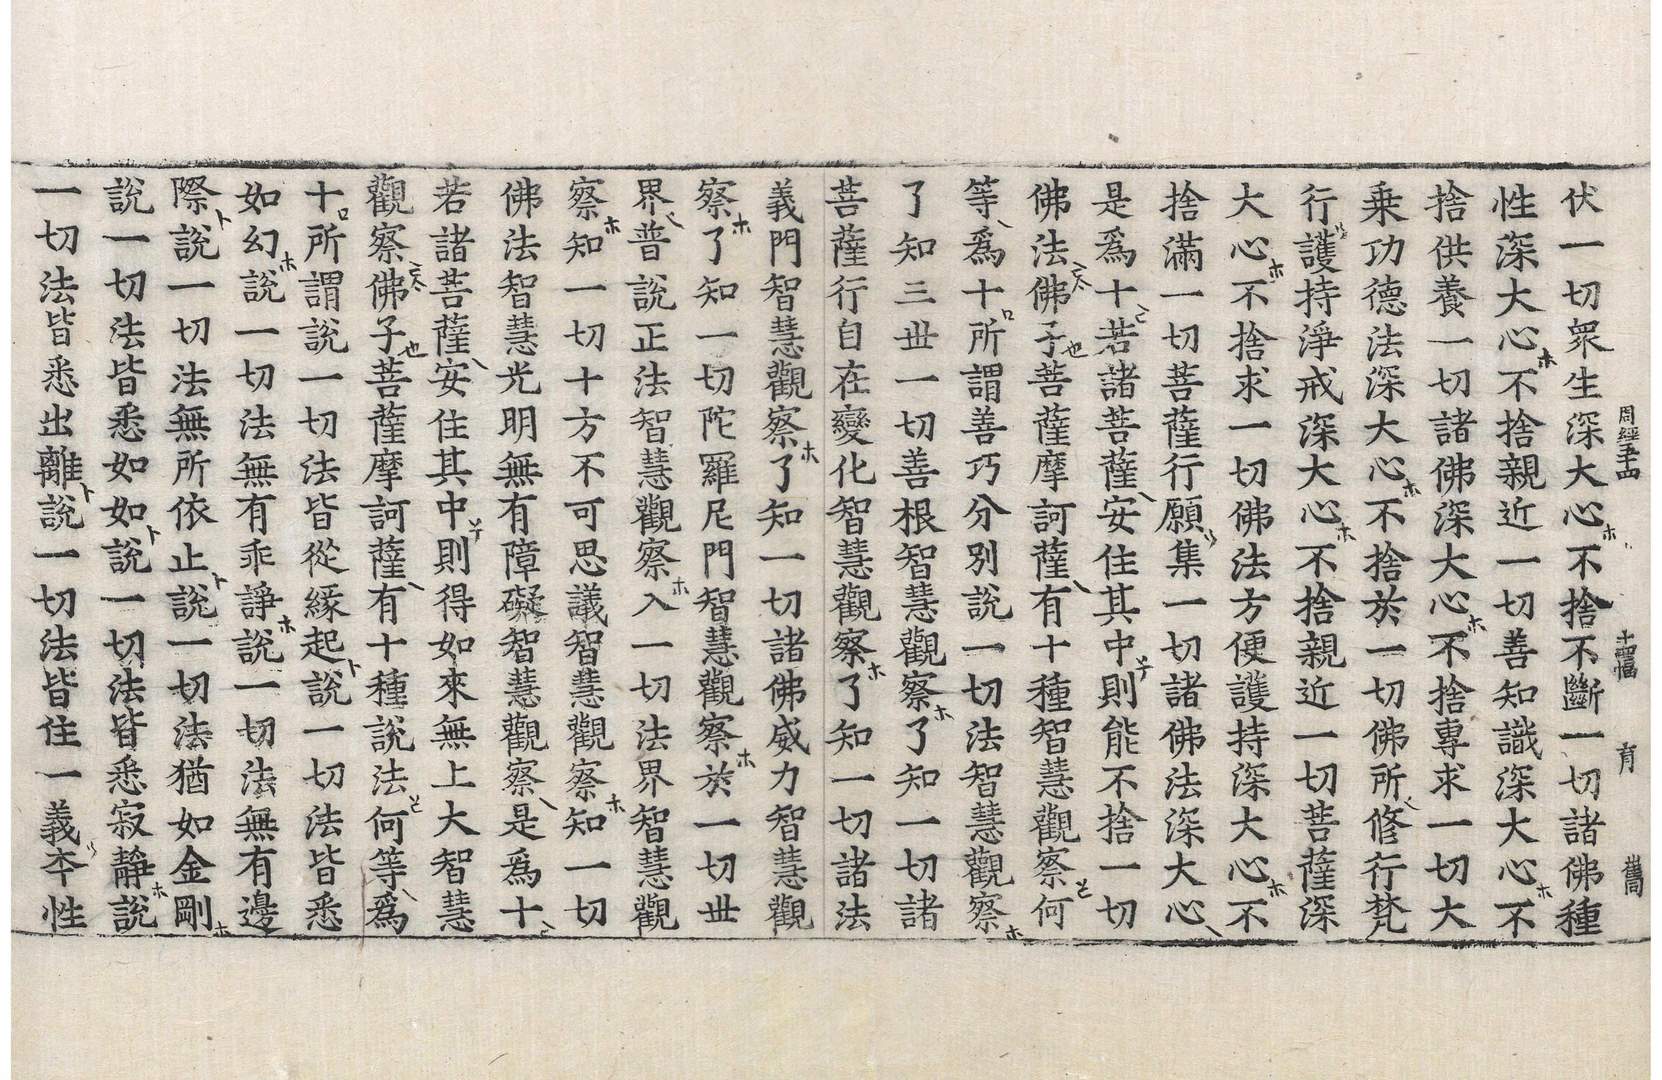 周經五十四 十四幅 育 雋
伏一切眾生深大心ホ不捨不斷一切諸佛種
性深大心ホ不捨親近一切善知識深大心ホ不
捨供養一切諸佛深大心ホ不捨專求一切大
乗功德法深大心ホ不捨於一切佛所修行梵
行護持淨戒深大心ホ不捨親近一切菩薩深
大心ホ不捨求一切佛法方便護持深大心ホ不
捨滿一切菩薩行願集一切諸佛法深大心
是爲十若諸菩薩安住其中則能不捨一切
佛法佛子也菩薩摩訶薩有十種智慧觀察何
等爲十口所謂善巧分別說一切法智慧觀察ホ
了知三世一切善根智慧觀察ホ了知一切諸
菩薩行自在變化智慧觀察ホ了知一切諸法
義門智慧觀察ホ了知一切諸佛威力智慧觀
察ホ了知一切陀羅尼門智慧觀察ホ於一切世
界普說正法智慧觀察ホ入一切法界智慧觀
察ホ知一切十方不可思議智慧觀察ホ知一切
佛法智慧光明無有障礙智慧觀察是爲十
若諸菩薩安住其中則得如來無上大智慧
觀察佛子也菩薩摩訶薩有十種說法何等爲
十口所謂說一切法皆從緣起ト說一切法皆悉
如幻ホ說一切法無有乖諍ホ說一切法無有邊
際ト說一切法無所依止ト說一切法猶如金剛ホ
說一切法皆悉如如ト說一切法皆悉寂靜ホ說
一切法皆悉出離ト說一切法皆住一義夲性